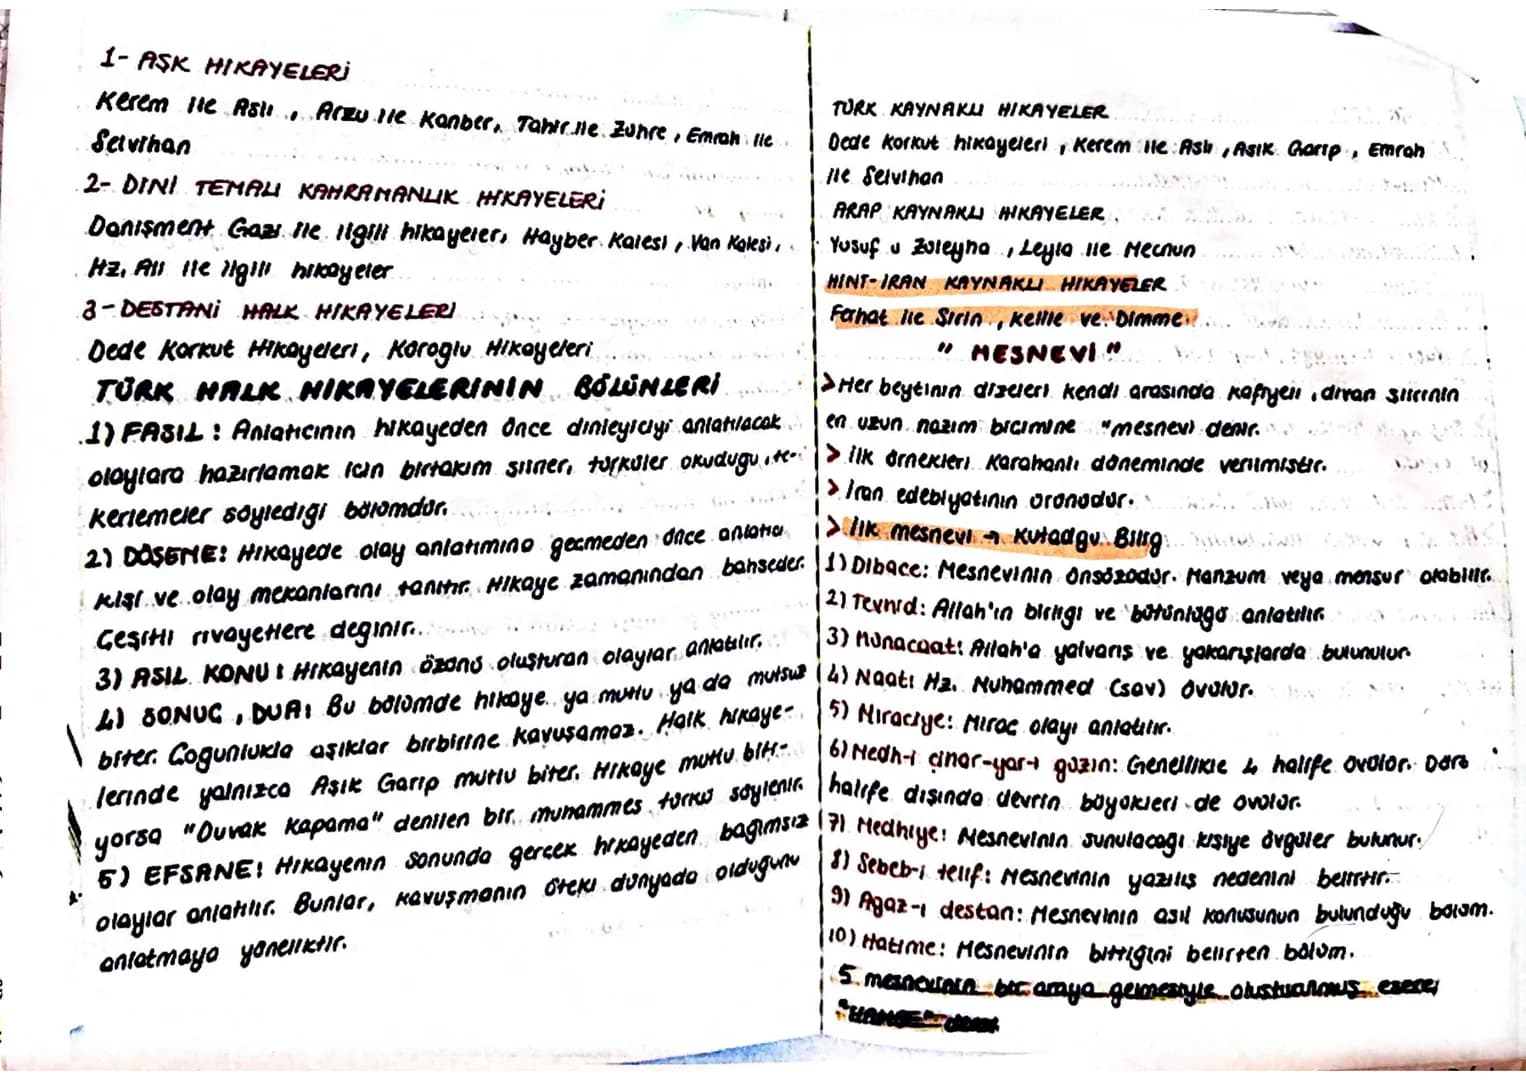 1- AŞK HIKAYELERİ
Kerem ile Aslı, Arzu ile Kanber, Tahir ile Zühre, Emrah ile
Selvihan
2- DINİ TEMALI KAHRAMANLIK HIKAYELERİ
Danişment Gazi ile ilgili hikayeler, Hayber Kalesi, Van Kalesi,
Hz. Ali ile ilgili hikayeler
3- DESTANİ HALK HIKAYELERI
Dede Korkut Hikayeleri, Köroglu Hikayeleri
TÜRK HALK HIKAYELERININ BÖLÜMLERİ
1) FASIL: Anlatıcının hikayeden önce dinleyiciyi anlatılacak
olaylara hazırlamak icin birtakım siirler, türküler okudugu, te-
kerlemeler söyledigi bölümdür.
2) DÖSEME: Hikayede olay anlatımına gecmeden önce anlatıcı
kişi ve olay mekanlarını tanıtır. Hikaye zamanından bahseder.
Cesitli rivayetlere deginir.
3) ASIL KONU: Hikayenin özünü oluşturan olaylar anlatılır.
4) SONUC, DUA: Bu bölümde hikaye ya mutlu ya da mutsuz
biter. Cogunlukla aşıklar birbirine kavuşamaz. Halk hikaye-
lerinde yalnızca Aşık Garip mutlu biter. Hikaye mutlu biti-
yorsa "Duvak Kapama" denilen bir muhammes türkü söylenir.
5) EFSANE: Hikayenin sonunda gercek hikayeden bağımsız
olaylar anlatılır. Bunlar, kavuşmanın öteki dünyada oldugunu
anlatmaya yöneliktir.
TÜRK KAYNAKLI HIKAYELER
Dede Korkut hikayeleri, Kerem ile Aslı, Asık Garip, Emrah
ile Selvihan
ARAP KAYNAKLI HIKAYELER
Yusuf u Züleyha, Leyla ile Mecnun
HINT-IRAN KAYNAKLI HIKAYELER
Ferhat ile Sirin, Kelile ve Dimme
" MESNEVİ "
> Her beytinin dizeleri kendi arasında kafiyeli, divan siirinin
en uzun nazım bicimine "mesnevi denir.
> ilk örnekleri Karahanlı döneminde verilmistir.
> Iran edebiyatının ürünüdür.
> Ilk mesnevi → Kutadgu Bilig
1) Dibace: Mesnevinin önsözüdür. Manzum veya mensur olabilir.
2) Tevhid: Allah'ın birligi ve bütünlügü anlatılır.
3) Münacaat: Allah'a yalvarış ve yakarışlarda bulunulur.
4) Naat: Hz. Muhammed (sav) övülür.
5) Miraciye: Mirac olayı anlatılır.
6) Medh-i çihar-yar-ı güzin: Genellikle 4 halife övülür. Dört
halife dışında devrin büyükleri de övülür.
7) Medhiye: Mesnevinin sunulacağı kişiye övgüler bulunur.
8) Sebeb-i telif: Mesnevinin yazılış nedenini belirtir.
9) Agaz-ı destan: Mesnevinin asıl konusunun bulunduğu bölüm.
10) Hatime: Mesnevinin bittiğini belirten bölüm.
5 mesnevinin bir araya gelmesiyle olusturulmuş esere,
"HAMSE" denir.